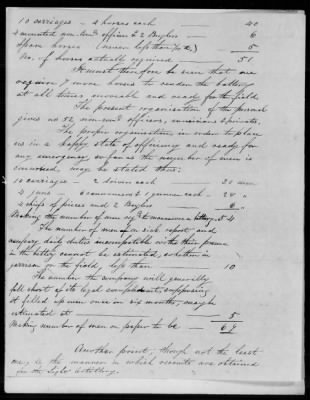 10 carriages — 4 horses each — 40
4 mounted non. com'd officers & 2 Buglers — 6
Spare horses (never less than 1/12) — 5
No. of horses actually required — 51
It must therefore be seen that we
require 7 more horses to render the battery
at all times moveable and ready for the field.
The present organization of the personel
gives no 52, non com'd officers, musicians & privates.
The proper organization in order to place
us in a happy state of efficiency and ready for
any emergency so far as the number of men is
concerned, may be stated thus:
10 carriages — 2 drivers each — 20 men
4 guns — 6 cannoneers & 1 gunner each — 28 "
4 chiefs of pieces and 2 Buglers — 6 "
Making the number of men req'd to manoeuvre a battery, 54
The number of men on sick report and
necessary daily duties incompatible with their presence
in the battery cannot be estimated, whether in
garrison or the field, less than — 10
The number the company will generally
fall short of its legal complement, supposing
it filled up even once in six months, may be
estimated at — 5
Making number of men on paper to be — 69
Another point, though not the least
may be the manner in which recruits are obtained
for the Light Artillery.